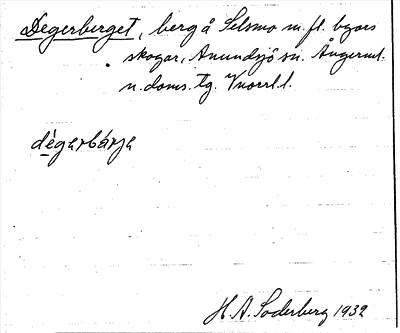 Degerberget, berg å Selsmo m.fl. byars
skogar, Anundsjö sn. Ångerml.
n. doms. tg. Vnorrl.l.
dégarbárja
H.A. Söderberg 1932